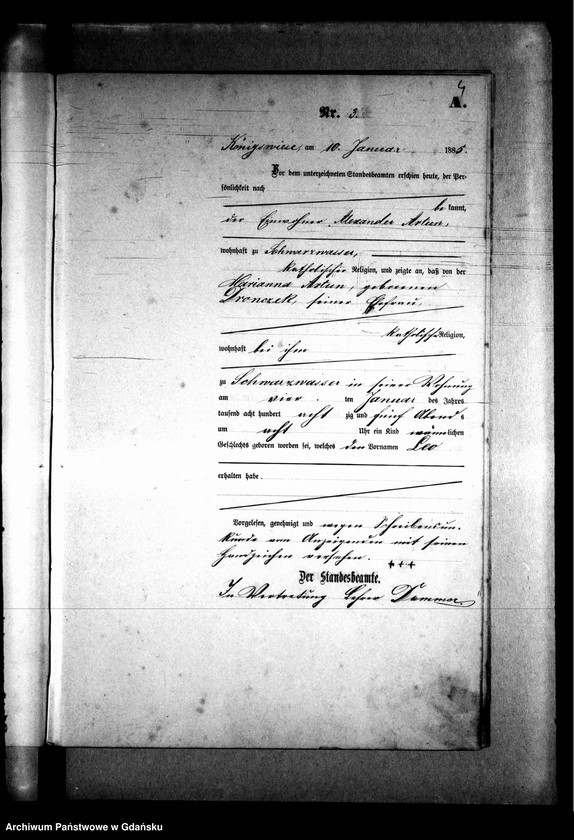 4
A.
Nr. 3.
Königswiese, am 10. Januar 1885.
Vor dem unterzeichneten Standesbeamten erschien heute, der Per-
sönlichkeit nach
be kannt,
der Einwohner Alexander
wohnhaft zu Schwarzwasser,
katholischer Religion, und zeigte an, daß von der
Marianna geborenen
seiner Ehefrau,
katholischer Religion,
wohnhaft bei ihm
zu Schwarzwasser in seiner Wohnung
am vier ten Januar des Jahres
tausend acht hundert acht zig und fünf Abends
um acht Uhr ein Kind männlichen
Geschlechts geboren worden sei, welches den Vornamen Leo
erhalten habe.
Vorgelesen, genehmigt und wegen Schreibensun-
kunde vom Anzeigenden mit seinem
Handzeichen versehen.
+++
Der Standesbeamte.
In Vertretung Lehrer
Archiwum Państwowe w Gdańsku